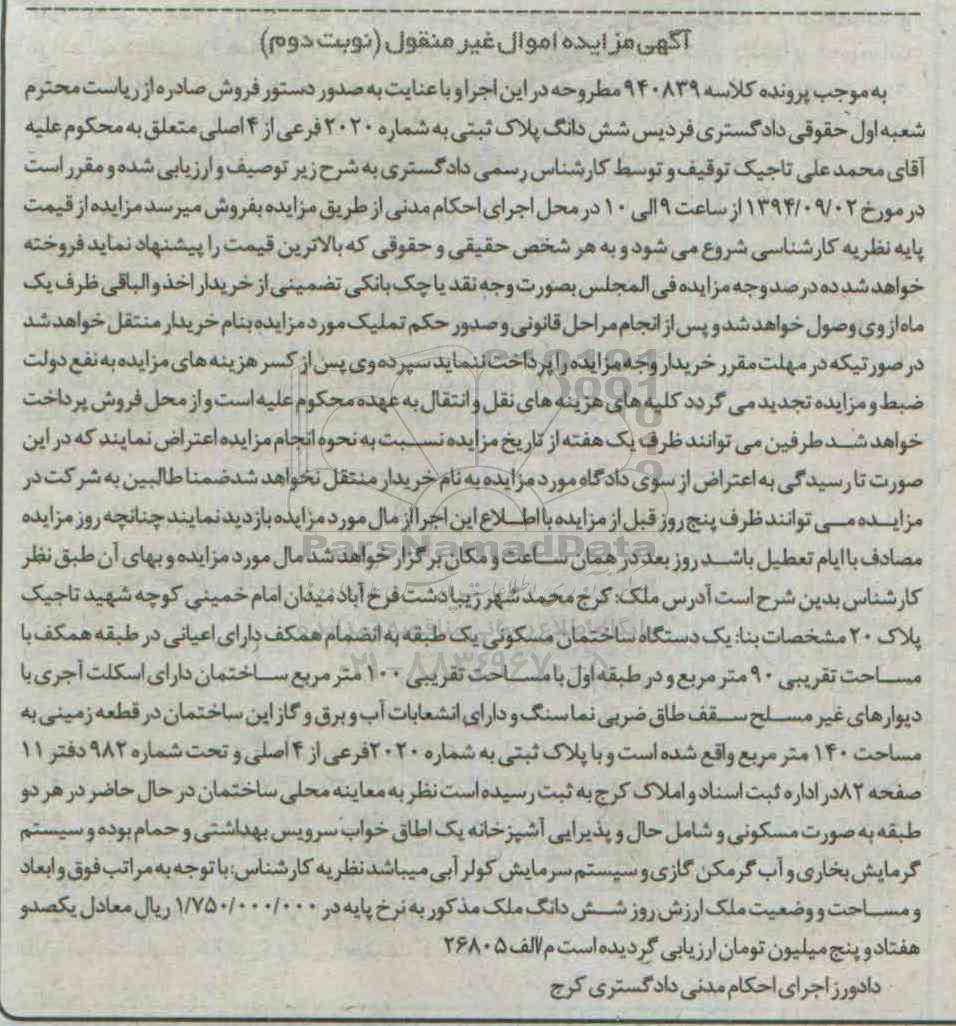 آگهی مزایده اموال غیر منقول (نوبت دوم)
به موجب پرونده کلاسه ۹۴۰۸۳۹ مطروحه در این اجرا و با عنایت به صدور دستور فروش صادره از ریاست محترم
شعبه اول حقوقی دادگستری فردیس شش دانگ پلاک ثبتی به شماره ۲۰۲۰ فرعی از ۴ اصلی متعلق به محکوم علیه
آقای محمد علی تاجیک توقیف و توسط کارشناس رسمی دادگستری به شرح زیر توصیف و ارزیابی شده و مقرر است
در مورخ ۱۳۹۴/۰۹/۰۲ از ساعت ۹ الی ۱۰ در محل اجرای احکام مدنی از طریق مزایده بفروش میرسد مزایده از قیمت
پایه نظریه کارشناسی شروع می شود و به هر شخص حقیقی و حقوقی که بالاترین قیمت را پیشنهاد نماید فروخته
خواهد شد ده درصد وجه مزایده فی المجلس بصورت وجه نقد یا چک بانکی تضمینی از خریدار اخذ و الباقی ظرف یک
ماه از وی وصول خواهد شد و پس از انجام مراحل قانونی و صدور حکم تملیک مورد مزایده بنام خریدار منتقل خواهد شد
در صورتیکه در مهلت مقرر خریدار وجه مزایده را پرداخت ننماید سپرده وی پس از کسر هزینه های مزایده به نفع دولت
ضبط و مزایده تجدید می گردد کلیه های هزینه های نقل و انتقال به عهده محکوم علیه است و از محل فروش پرداخت
خواهد شد طرفین می توانند ظرف یک هفته از تاریخ مزایده نسبت به نحوه انجام مزایده اعتراض نمایند که در این
صورت تا رسیدگی به اعتراض از سوی دادگاه مورد مزایده به نام خریدار منتقل نخواهد شد ضمنا طالبین به شرکت در
مزایده می توانند ظرف پنج روز قبل از مزایده با اطلاع این اجرا از مال مورد مزایده بازدید نمایند چنانچه روز مزایده
مصادف با ایام تعطیل باشد روز بعد در همان ساعت و مکان برگزار خواهد شد مال مورد مزایده و بهای آن طبق نظر
کارشناس بدین شرح است آدرس ملک: کرج محمد شهر زیبادشت فرخ آباد میدان امام خمینی کوچه شهید تاجیک
پلاک ۲۰ مشخصات بنا: یک دستگاه ساختمان مسکونی یک طبقه به انضمام همکف دارای اعیانی در طبقه همکف با
مساحت تقریبی ۹۰ متر مربع و در طبقه اول با مساحت تقریبی ۱۰۰ متر مربع ساختمان دارای اسکلت آجری با
دیوارهای غیر مسلح سقف طاق ضربی نما سنگ و دارای انشعابات آب و برق و گاز این ساختمان در قطعه زمینی به
مساحت ۱۴۰ متر مربع واقع شده است و با پلاک ثبتی به شماره ۲۰۲۰ فرعی از ۴ اصلی و تحت شماره ۹۸۲ دفتر ۱۱
صفحه ۸۲ در اداره ثبت اسناد و املاک کرج به ثبت رسیده است نظر به معاینه محلی ساختمان در حال حاضر در هر دو
طبقه به صورت مسکونی و شامل حال و پذیرایی آشپزخانه یک اطاق خواب سرویس بهداشتی و حمام بوده و سیستم
گرمایش بخاری و آب گرمکن گازی و سیستم سرمایش کولر آبی میباشد نظریه کارشناس: با توجه به مراتب فوق و ابعاد
و مساحت و وضعیت ملک ارزش روز شش دانگ ملک مذکور به نرخ پایه در ۱/۷۵۰/۰۰۰/۰۰۰ ریال معادل یکصدو
هفتاد و پنج میلیون تومان ارزیابی گردیده است م/الف ۲۶۸۰۵
دادورز اجرای احکام مدنی دادگستری کرج
ParsNamadData
۰۲۱-۸۸۳۴۹۶۷۰